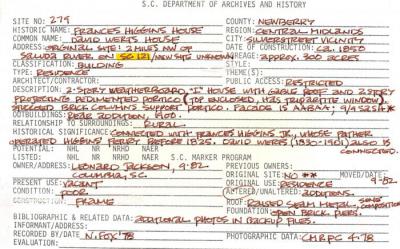 S.C. DEPARTMENT OF ARCHIVES AND HISTORY
SITE NO: 279 COUNTY: NEWBERRY
HISTORIC NAME: FRANCES HIGGINS HOUSE REGION: CENTRAL MIDLANDS
COMMON NAME: DAVID WERTS HOUSE CITY: SILVERSTREET VICINITY
ADDRESS: ORIGINAL SITE: 2 MILES NW OF DATE OF CONSTRUCTION: CA. 1850
SALUDA RIVER ON SC 121 (NEW SITE UNKNOWN) ACREAGE: APPROX. 300 ACRES
CLASSIFICATION: BUILDING STYLE:
TYPE: RESIDENCE THEME(S):
ARCHITECT/CONTRACTOR: PUBLIC ACCESS: RESTRICTED
DESCRIPTION: 2-STORY WEATHERBOARD, "I" HOUSE WITH GABLE ROOF AND 2 STORY
PROJECTING PEDIMENTED PORTICO (TOP ENCLOSED, HAS TRIPARTITE WINDOW).
STUCCOED BRICK COLUMNS SUPPORT PORTICO. FACADE IS AABAA; 9/9
OUTBUILDINGS: REAR ADDITION,
RELATIONSHIP TO SURROUNDINGS: RURAL
HISTORICAL SIGNIFICANCE: CONNECTED WITH FRANCES HIGGINS JR., WHOSE FATHER
OPERATED HIGGINS FERRY BEFORE 1825. DAVID WERTS (1830-1901) ALSO IS
CONNECTED.
POTENTIAL NHL NR NRHD NAER
LISTED: NHL NR NRHD NAER S.C. MARKER PROGRAM
OWNER/ADDRESS: LEONARD JACKSON, 9-82 PREVIOUS OWNERS:
COLUMBIA, SC. ORIGINAL SITE NO ** MOVED/DATE:
PRESENT USE: VACANT ORIGINAL USE: RESIDENCE 9-82
CONDITION: POOR (ALTERED)/UNALTERED: ADDITIONS.
CONSTRUCTION: FRAME ROOF: RAISED SEAM METAL, SOME COMPOSITION
FOUNDATION: OPEN BRICK PIERS.
BIBLIOGRAPHIC & RELATED DATA: ADDITIONAL PHOTOS IN BACKUP FILES.
INFORMATIONAL DATA:
RECORDED BY/DATE: N. FOX '78 PHOTOGRAPHY: CMRPC 4-78